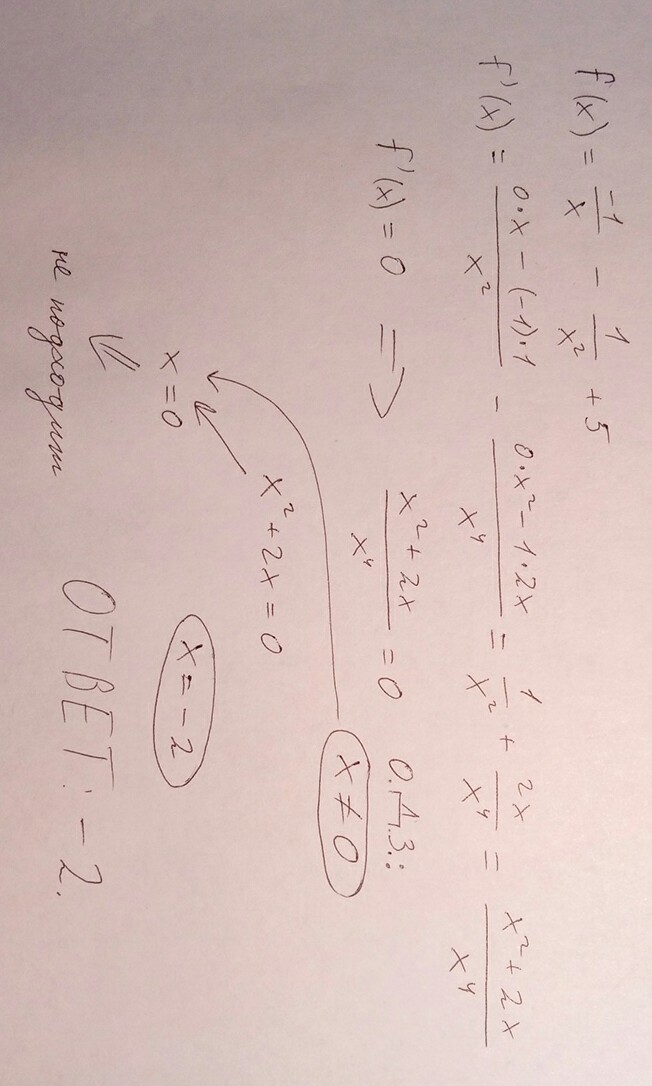 f(x) = -1/x - 1/x² + 5
f'(x) = (0·x - (-1)·1)/x² - (0·x² - 1·2x)/x⁴ = 1/x² + 2x/x⁴ = (x² + 2x)/x⁴
f'(x) = 0 ⇒ (x² + 2x)/x⁴ = 0 О.Д.З.:
x ≠ 0
x² + 2x = 0
x = 0 x = -2
не подходит
ОТВЕТ: -2.